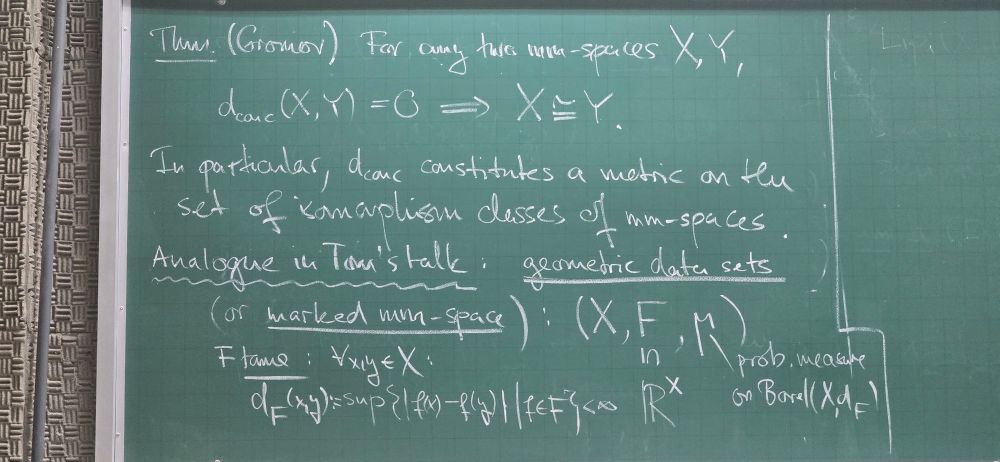 Thm. (Gromov) For any two mm-spaces X, Y,
d_conc(X, Y) = 0 ⟹ X ≅ Y.
In particular, d_conc constitutes a metric on the
set of isomorphism classes of mm-spaces.
Analogue in Tom's talk : geometric data sets
(or marked mm-space) : (X, F, μ)
F tame : ∀x,y ∈ X : in prob. measure
d_F(x,y) := sup{|f(x) - f(y)| | f ∈ F} < ∞ ℝ^X on Borel(X, d_F)